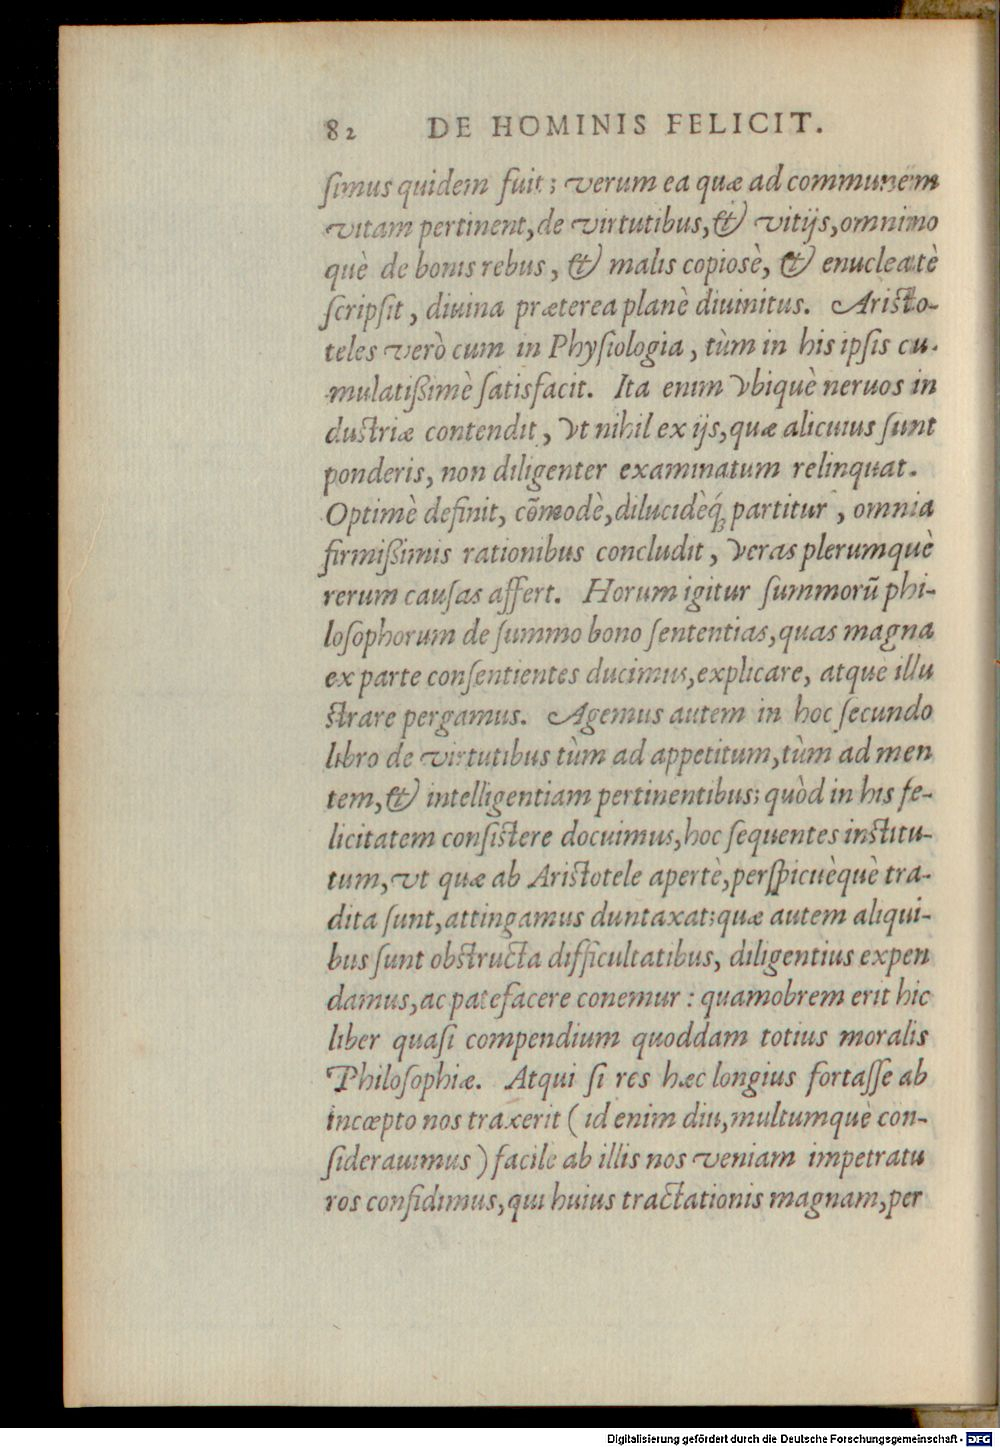 82 DE HOMINIS FELICIT.
ſimus quidem fuit; verum ea quæ ad communem
vitam pertinent, de virtutibus, & vitijs, omnimo
què de bonis rebus, & malis copiosè, & enucleatè
ſcripſit, diuina præterea planè diuinitus. Ariſto-
teles verò cum in Phyſiologia, tùm in his ipſis cu-
mulatißimè ſatisfacit. Ita enim vbiquè neruos in
duſtriæ contendit, vt nihil ex ijs, quæ alicuius ſunt
ponderis, non diligenter examinatum relinquat.
Optimè definit, cõmodè, dilucidèq́; partitur, omnia
firmißimis rationibus concludit, veras plerumquè
rerum cauſas affert. Horum igitur ſummorũ phi-
loſophorum de ſummo bono ſententias, quas magna
ex parte conſentientes ducimus, explicare, atque illu
ſtrare pergamus. Agemus autem in hoc ſecundo
libro de virtutibus tùm ad appetitum, tùm ad men
tem, & intelligentiam pertinentibus; quòd in his fe-
licitatem conſiſtere docuimus, hoc ſequentes inſtitu-
tum, vt quæ ab Ariſtotele apertè, perſpicuèquè tra-
dita ſunt, attingamus duntaxat; quæ autem aliqui-
bus ſunt obſtructa difficultatibus, diligentius expen
damus, ac patefacere conemur: quamobrem erit hic
liber quaſi compendium quoddam totius moralis
Philoſophiæ. Atqui ſi res hæc longius fortaſſe ab
incœpto nos traxerit (id enim diu, multumquè con-
ſiderauimus) facile ab illis nos veniam impetratu
ros confidimus, qui huius tractationis magnam, per
Digitalisierung gefördert durch die Deutsche Forschungsgemeinschaft - DFG